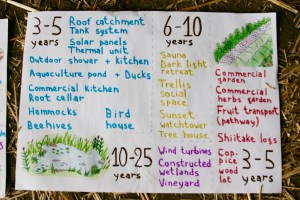 3-5
years
Roof catchment
Tank system
Solar panels
Thermal unit
Outdoor shower + kitchen
Aquaculture pond + Ducks
Commercial kitchen
Root cellar
Hammocks
Beehives
Bird
house
6-10
years
Sauna
Dark light
retreat
Trellis
social
space
Sunset
watchtower
Tree house
Commercial
garden
Commercial
herbs garden
Fruit transport
(pathway)
Shiitake logs
Cop-
pice
wood
lot
3-5
years
10-25
years
Wind turbines
Constructed
wetlands
Vineyard